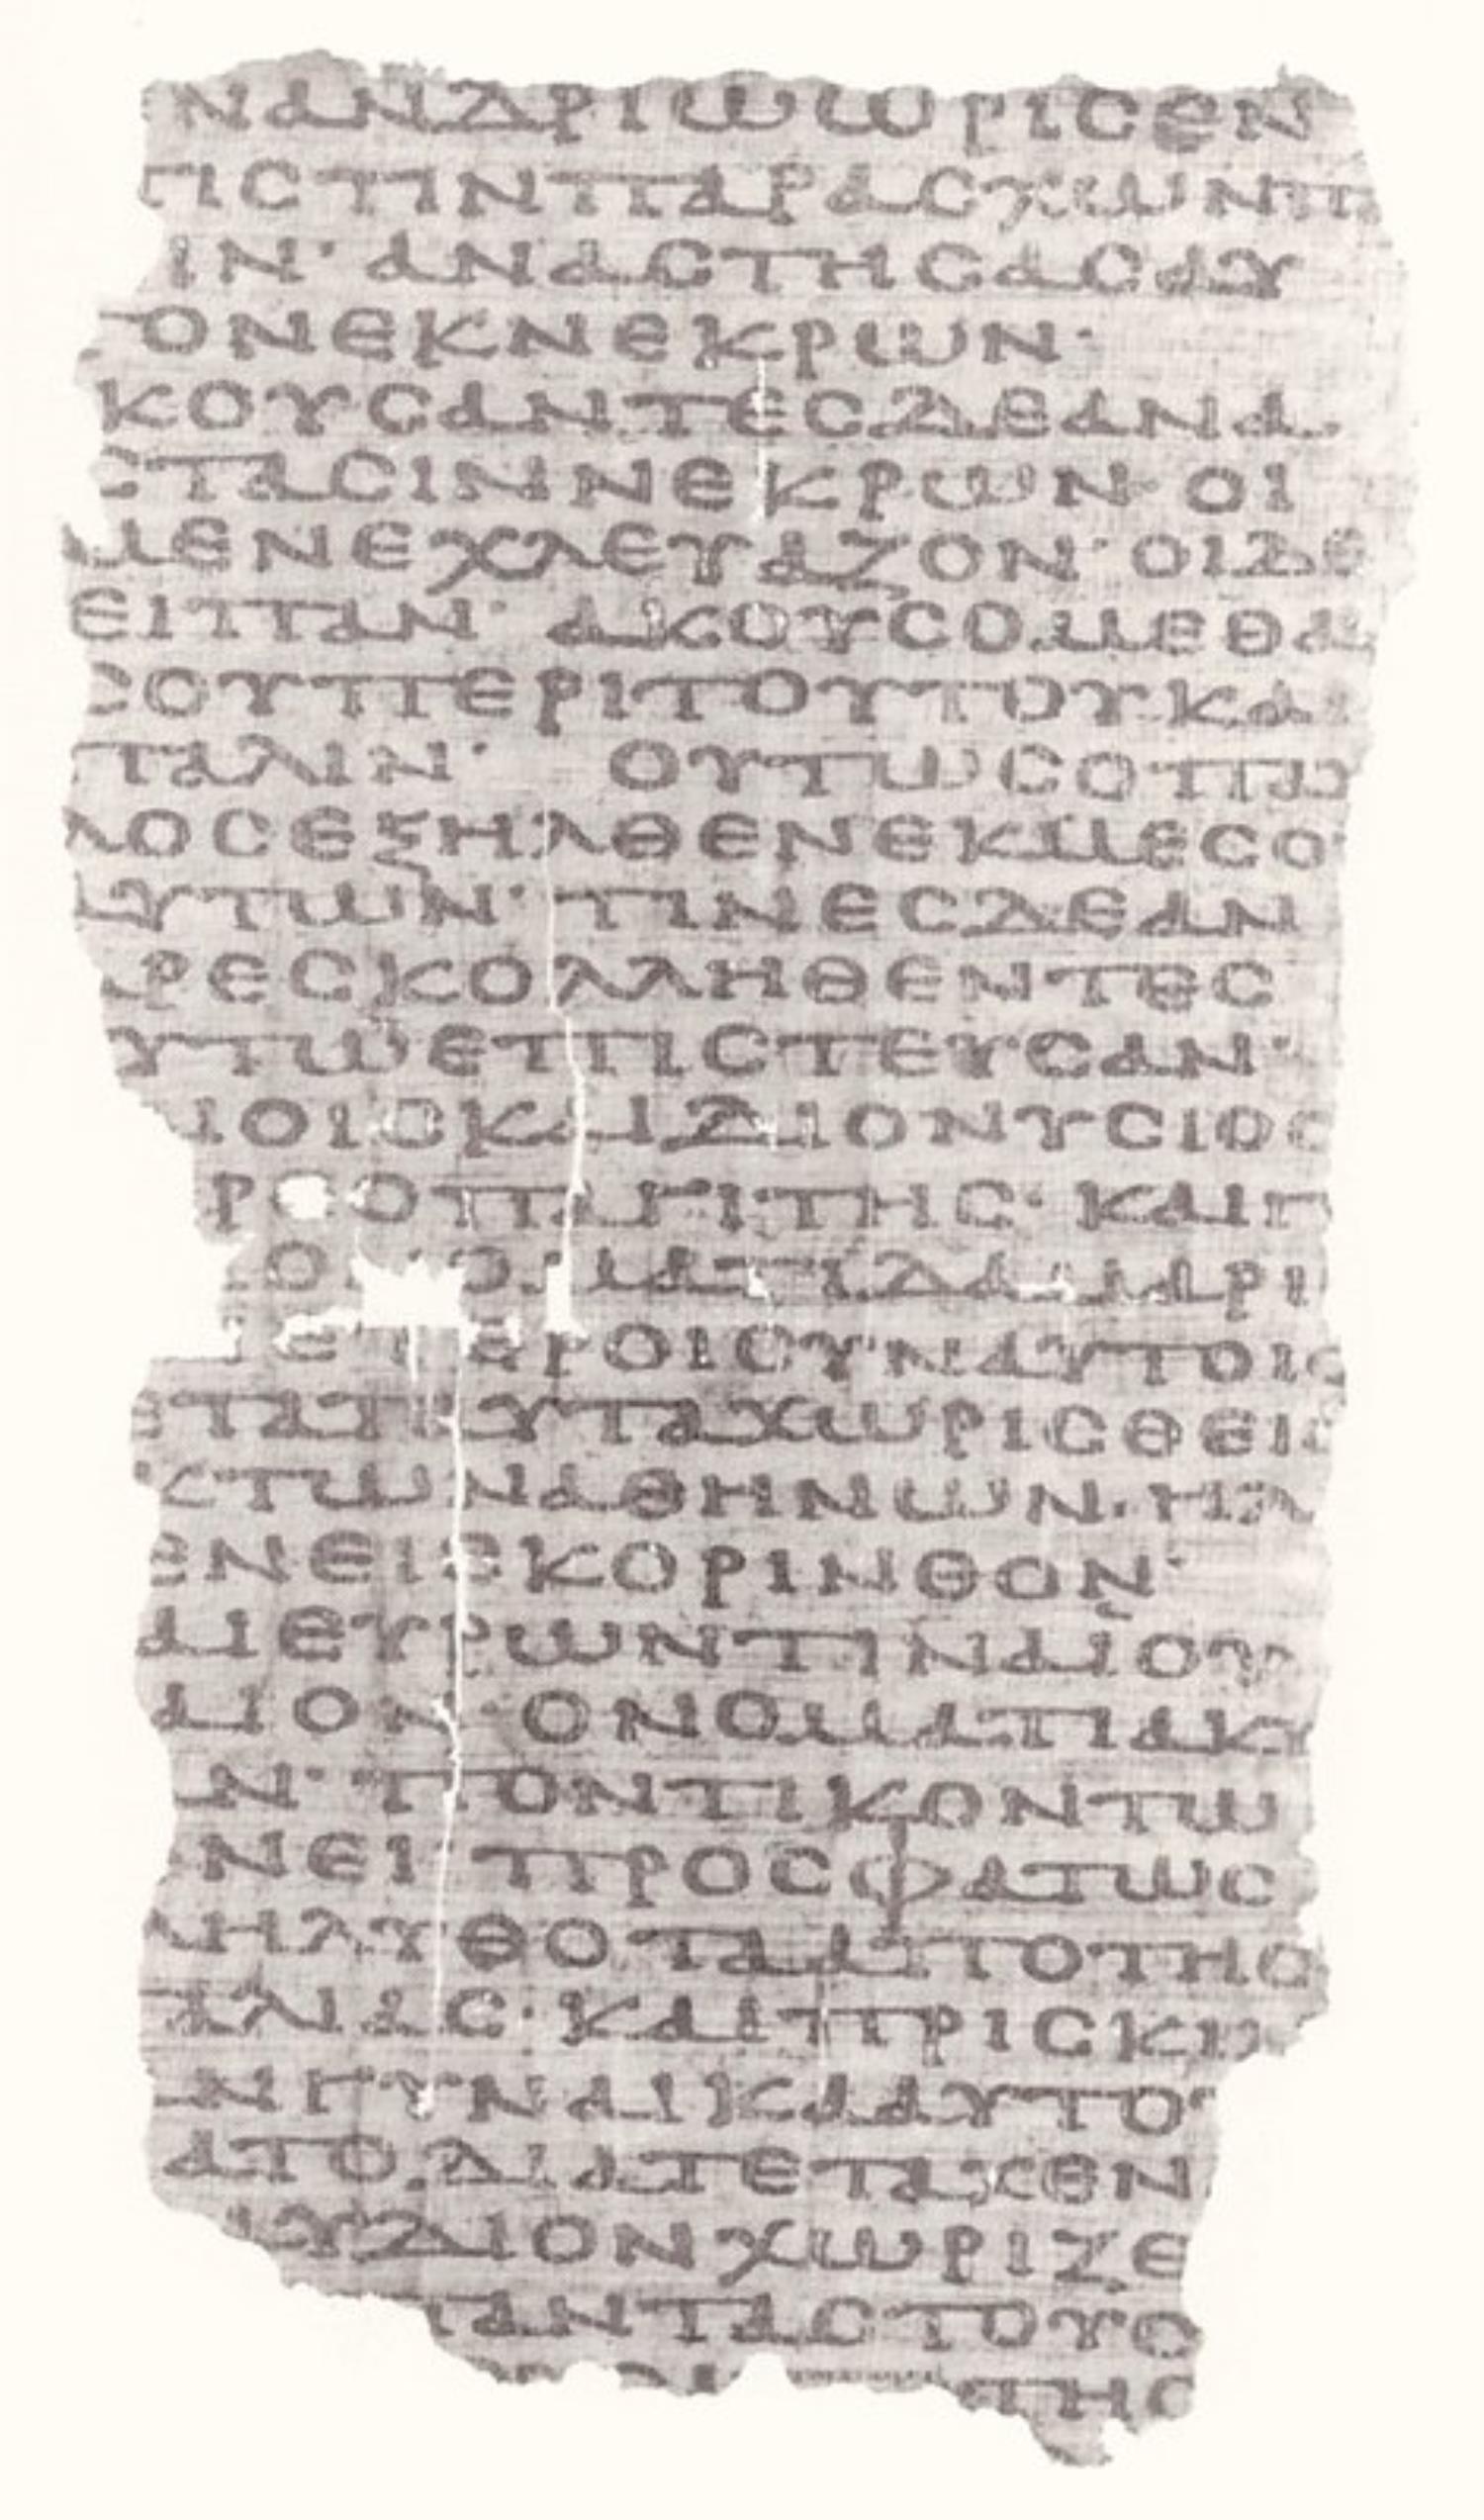 ΝΑΝΔΡΙΩΩΡΙCΕΝ
ΠΙCΤΙΝΠΑΡΑCΧΩΝΠΑ
ΙΝ· ΑΝΑCΤΗCΑCΑΥ
ΤΟΝΕΚΝΕΚΡΩΝ·
ΚΟΥCΑΝΤΕCΔΕΑΝΑ
CΤΑCΙΝΝΕΚΡΩΝ· ΟΙ
ΜΕΝΕΧΛΕΥΑΖΟΝ· ΟΙΔΕ
ΕΙΠΑΝ· ΑΚΟΥCΟΜΕΘΑ
CΟΥΠΕΡΙΤΟΥΤΟΥΚΑΙ
ΠΑΛΙΝ· ΟΥΤΩCΟΠΑΥ
ΛΟCΕΞΗΛΘΕΝΕΚΜΕCΟΥ
ΑΥΤΩΝ· ΤΙΝΕCΔΕΑΝ
ΔΡΕCΚΟΛΛΗΘΕΝΤΕC
ΥΤΩΕΠΙCΤΕΥCΑΝ·
ΝΟΙΟΙCΚΑΙΔΙΟΝΥCΙΟC
Ρ ΟΠΑΓΙΤΗC· ΚΑΙΓ
Ο ΟΝΟΜΑΤΙΔΑΜΑΡΙ
ΕΤΕΡΟΙCΥΝΑΥΤΟΙC
ΕΤΑΤΑΥΤΑΧΩΡΙCΘΕΙC
ΚΤΩΝΑΘΗΝΩΝ· ΗΛ
ΕΝΕΙCΚΟΡΙΝΘΟΝ·
ΑΙΕΥΡΩΝΤΙΝΑΙΟΥ
ΔΙΟΝ· ΟΝΟΜΑΤΙΑΚΥ
ΑΝ· ΠΟΝΤΙΚΟΝΤΩ
ΝΕΙ ΠΡΟCΦΑΤΩC
ΛΗΛΥΘΟΤΑΑΠΟΤΗC
ΤΑΛΙΑC· ΚΑΙΠΡΙCΚΙΛ
ΑΝΓΥΝΑΙΚΑΑΥΤΟΥ
ΑΤΟΔΙΑΤΕΤΑΧΕΝ
ΑΥΔΙΟΝΧΩΡΙΖΕ
ΠΑΝΤΑCΤΟΥC
ΤΗC